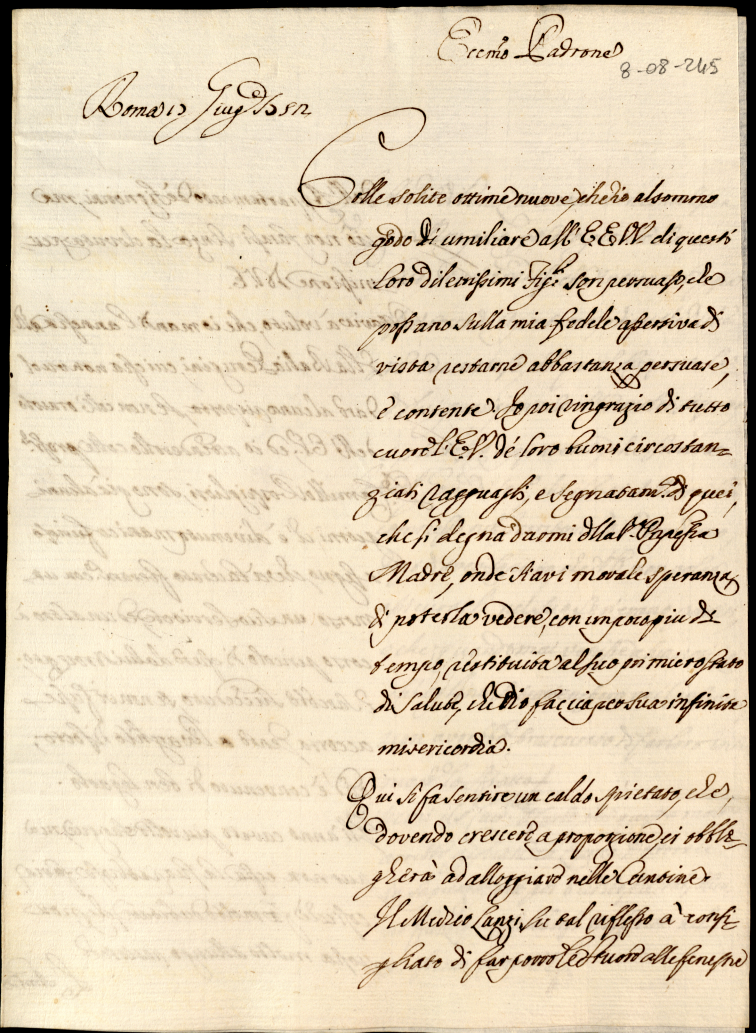 Eccmo Padrone
8-08-245
Roma 17 Giug
Colle solite ottime nuove, che io al sommo
godo di umiliare all'EE.VV. di questi
Loro dilettissimi Figl. son persuaso, che
possano sulla mia fedele assertiva di
vista restarne abbastanza persuase,
e contente. Io poi ringrazio di tutto
cuore l'E.V. de' loro buoni circostan=
ziati ragguagli, e segnatam. di quei,
che si degna darmi della
Madre, onde siavi morale speranza
di poterla vedere, con un poco più di
tempo, restituita al suo primiero stato
di salute, che Dio faccia per sua infinita
misericordia.
Qui si fa sentire un caldo spietato, che,
dovendo crescere a proporzione, ci obbli=
gherà ad alloggiare nelle Cantine.
Il Medico Lanzi su tal riflesso à consi=
gliato di far porre le alle fenestre